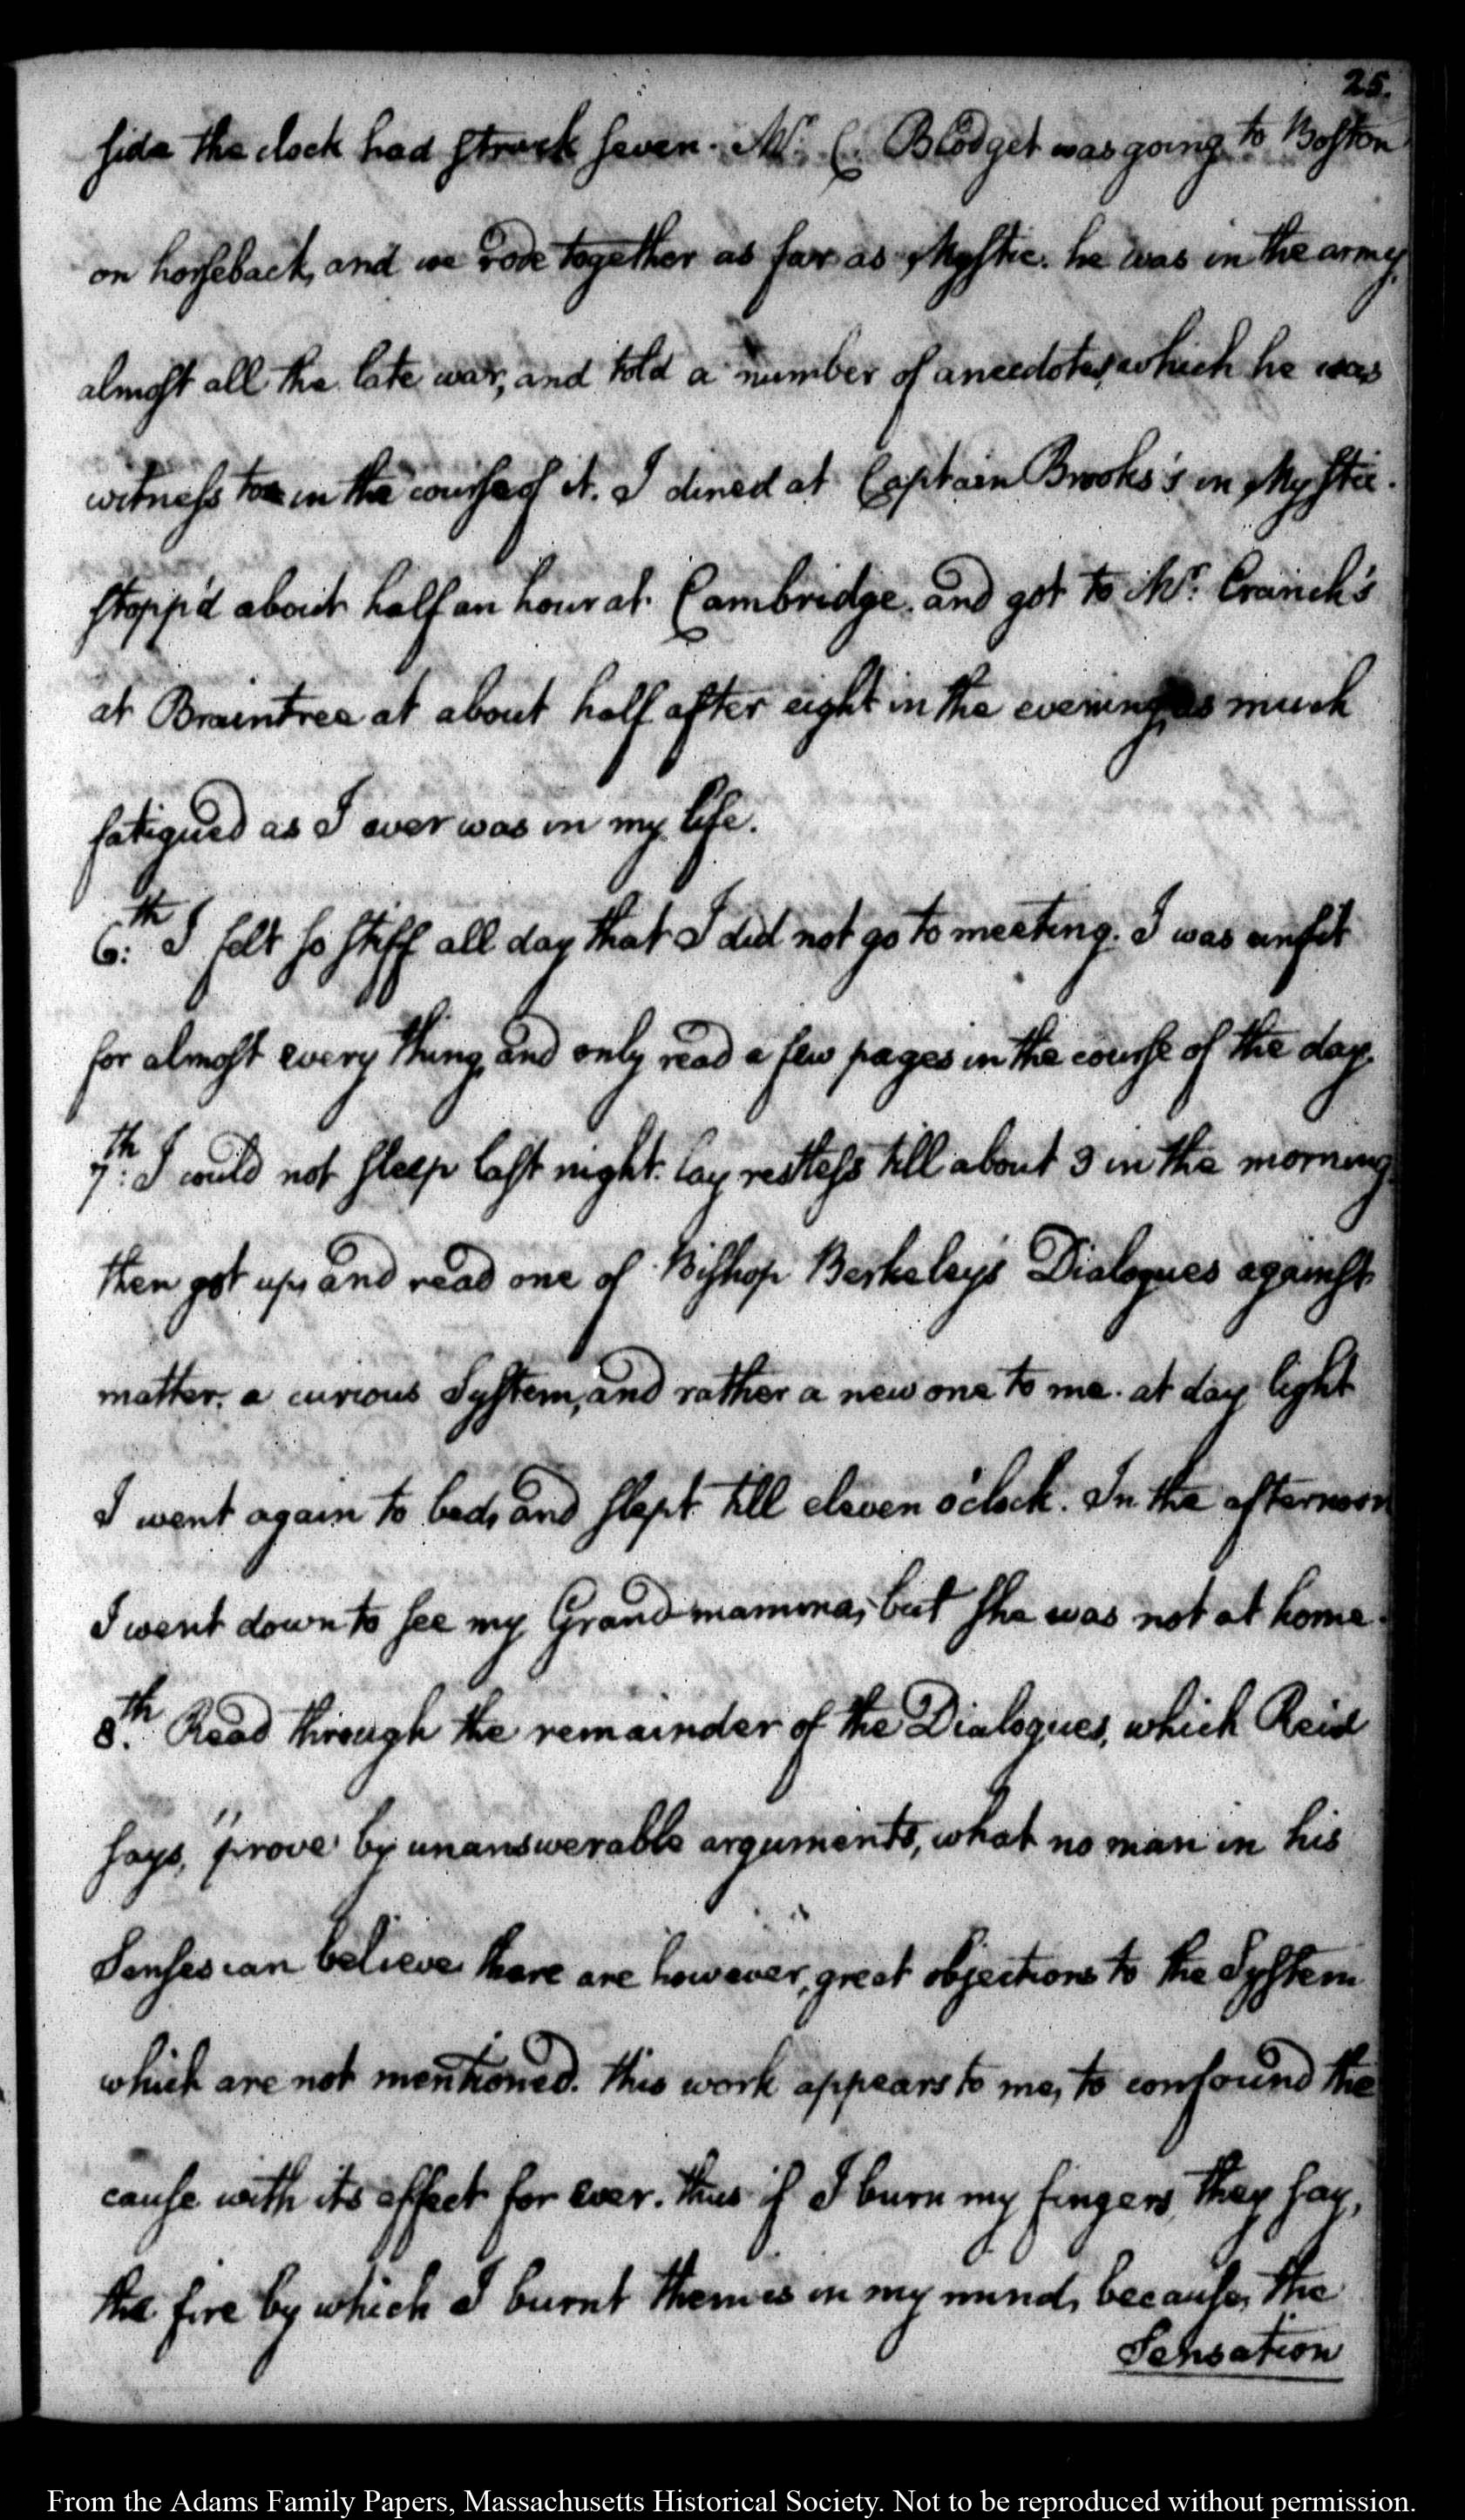 25.
side the clock had struck seven. Mr. C. Blodget was going to Boston
on horseback, and we rode together as far as Mystic. he was in the army,
almost all the late war, and told a number of anecdotes, which he was
witness to in the course of it. I dined at Captain Brooks's in Mystic.
stopp'd about half an hour at Cambridge, and got to Mr. Cranch's
at Braintree at about half after eight in the evening, as much
fatigued as I ever was in my life.
6th: I felt so stiff all day that I did not go to meeting. I was unfit
for almost every thing, and only read a few pages in the course of the day.
7th: I could not sleep last night. lay restless till about 3 in the morning.
then got up, and read one of Bishop Berkeley's Dialogues against
matter. a curious System, and rather a new one to me. at day light
I went again to bed, and slept till eleven o'clock. In the afternoon
I went down to see my Grand-mamma, but she was not at home.
8th. Read through the remainder of the Dialogues, which Reid
says, "prove by unanswerable arguments, what no man in his
Senses can believe there are however, great objections to the System
which are not mentioned. this work appears to me, to confound the
cause with its effect for ever. thus if I burn my fingers, they say,
the fire by which I burnt them is in my mind, because, the
Sensation
From the Adams Family Papers, Massachusetts Historical Society. Not to be reproduced without permission.